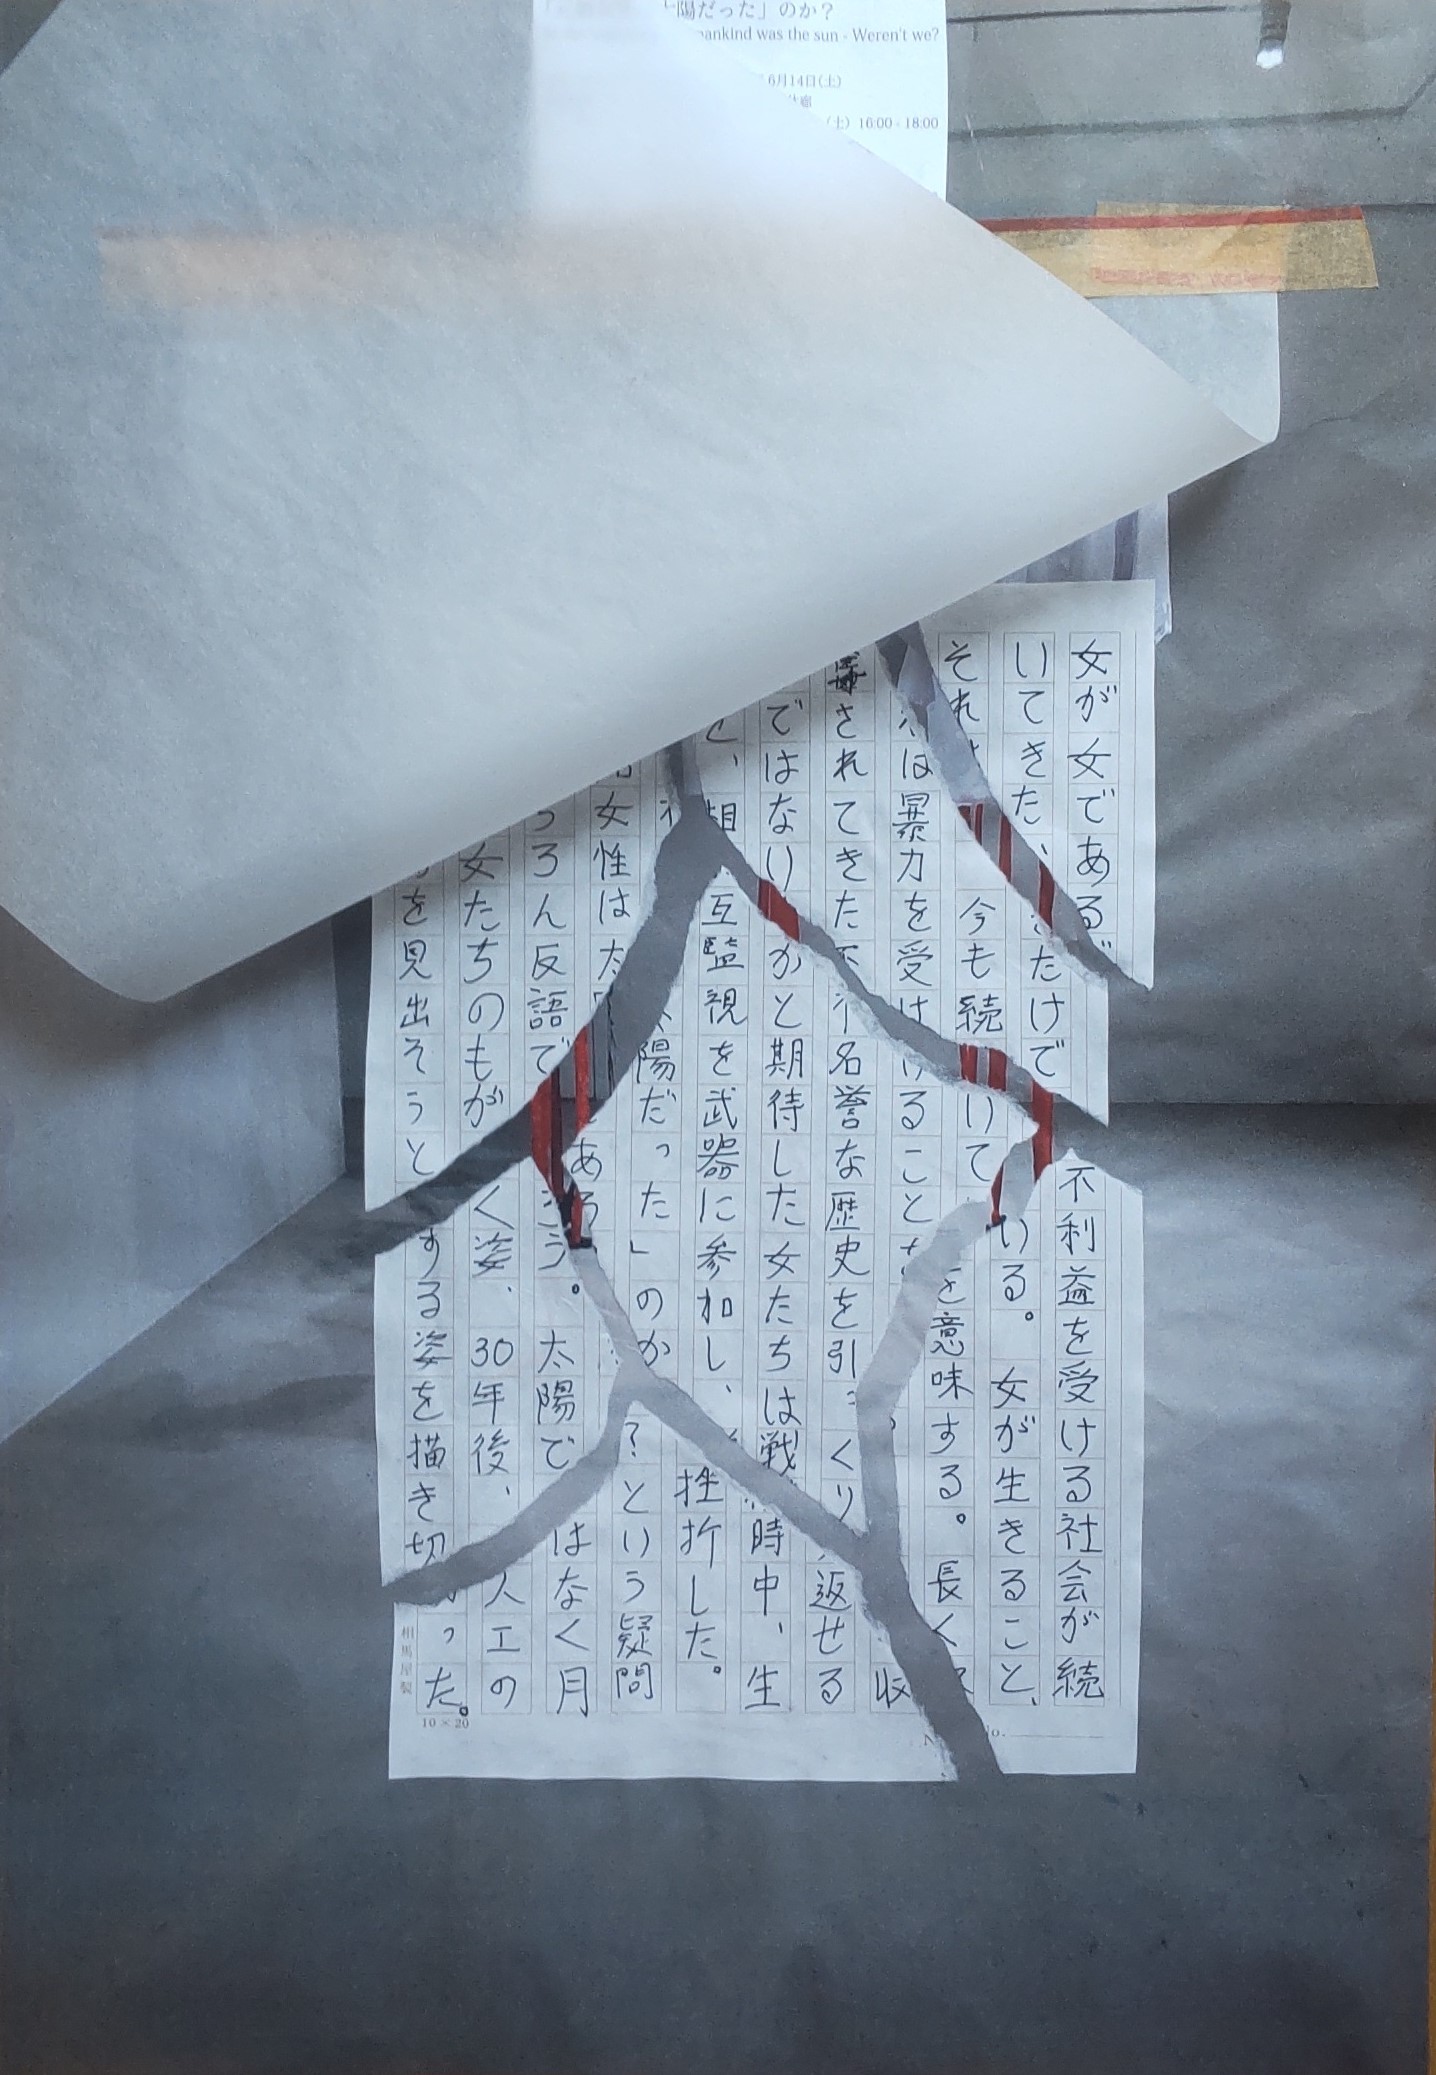 陽だった」のか?
mankind was the sun - Weren't we?
6月14日(土)
(土) 16:00 - 18:00
女が女であるだけで不利益を受ける社会が続
いてきた、今も続いている。女が生きること、
それは暴力を受けることを意味する。長く収
されてきた不名誉な歴史を引っくり返せる
ではないかと期待した女たちは戦時中、生
と、相互監視を武器に参加し、挫折した。
女性は太陽だった」のか?という疑問
ろん反語であろう。太陽ではなく月
女たちのもがく姿、30年後、人工の
を見出そうとする姿を描き切った。
相馬屋製
10×20
No.